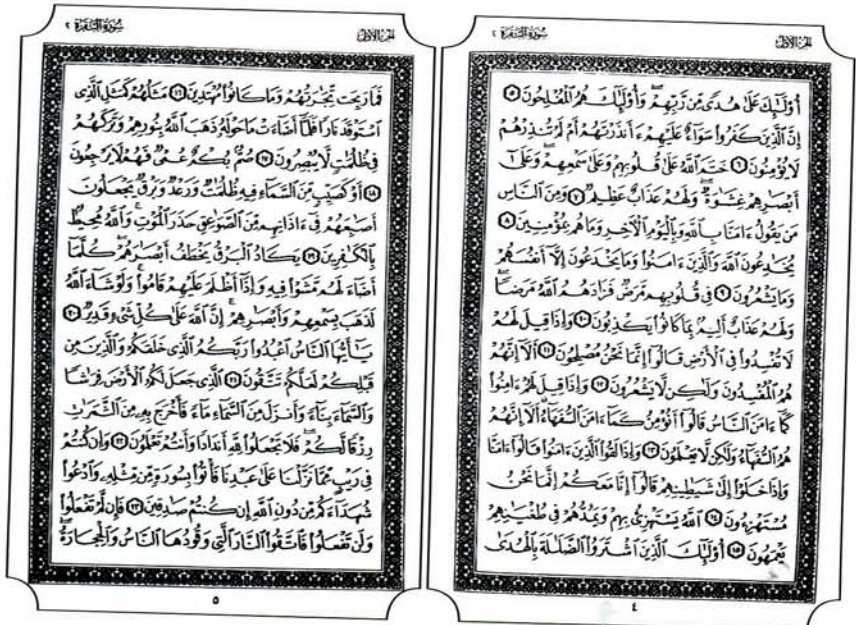 الجزء الأول
سورة البقرة ٢
أُوْلَـٰٓئِكَ عَلَىٰ هُدًى مِّن رَّبِّهِمْ وَأُوْلَـٰٓئِكَ هُمُ ٱلْمُفْلِحُونَ ٥
إِنَّ ٱلَّذِينَ كَفَرُوا۟ سَوَآءٌ عَلَيْهِمْ ءَأَنذَرْتَهُمْ أَمْ لَمْ تُنذِرْهُمْ
لَا يُؤْمِنُونَ ٦ خَتَمَ ٱللَّهُ عَلَىٰ قُلُوبِهِمْ وَعَلَىٰ سَمْعِهِمْ وَعَلَىٰٓ
أَبْصَـٰرِهِمْ غِشَـٰوَةٌ وَلَهُمْ عَذَابٌ عَظِيمٌ ٧ وَمِنَ ٱلنَّاسِ
مَن يَقُولُ ءَامَنَّا بِٱللَّهِ وَبِٱلْيَوْمِ ٱلْـَٔاخِرِ وَمَا هُم بِمُؤْمِنِينَ ٨
يُخَـٰدِعُونَ ٱللَّهَ وَٱلَّذِينَ ءَامَنُوا۟ وَمَا يَخْدَعُونَ إِلَّآ أَنفُسَهُمْ
وَمَا يَشْعُرُونَ ٩ فِى قُلُوبِهِم مَّرَضٌ فَزَادَهُمُ ٱللَّهُ مَرَضًا
وَلَهُمْ عَذَابٌ أَلِيمٌۢ بِمَا كَانُوا۟ يَكْذِبُونَ ١٠ وَإِذَا قِيلَ لَهُمْ
لَا تُفْسِدُوا۟ فِى ٱلْأَرْضِ قَالُوٓا۟ إِنَّمَا نَحْنُ مُصْلِحُونَ ١١ أَلَآ إِنَّهُمْ
هُمُ ٱلْمُفْسِدُونَ وَلَـٰكِن لَّا يَشْعُرُونَ ١٢ وَإِذَا قِيلَ لَهُمْ ءَامِنُوا۟
كَمَآ ءَامَنَ ٱلنَّاسُ قَالُوٓا۟ أَنُؤْمِنُ كَمَآ ءَامَنَ ٱلسُّفَهَآءُ أَلَآ إِنَّهُمْ
هُمُ ٱلسُّفَهَآءُ وَلَـٰكِن لَّا يَعْلَمُونَ ١٣ وَإِذَا لَقُوا۟ ٱلَّذِينَ ءَامَنُوا۟ قَالُوٓا۟ ءَامَنَّا
وَإِذَا خَلَوْا۟ إِلَىٰ شَيَـٰطِينِهِمْ قَالُوٓا۟ إِنَّا مَعَكُمْ إِنَّمَا نَحْنُ
مُسْتَهْزِءُونَ ١٤ ٱللَّهُ يَسْتَهْزِئُ بِهِمْ وَيَمُدُّهُمْ فِى طُغْيَـٰنِهِمْ
يَعْمَهُونَ ١٥ أُوْلَـٰٓئِكَ ٱلَّذِينَ ٱشْتَرَوُا۟ ٱلضَّلَـٰلَةَ بِٱلْهُدَىٰ
٤
الجزء الأول
سورة البقرة ٢
فَمَا رَبِحَت تِّجَـٰرَتُهُمْ وَمَا كَانُوا۟ مُهْتَدِينَ ١٦ مَثَلُهُمْ كَمَثَلِ ٱلَّذِى
ٱسْتَوْقَدَ نَارًا فَلَمَّآ أَضَآءَتْ مَا حَوْلَهُۥ ذَهَبَ ٱللَّهُ بِنُورِهِمْ وَتَرَكَهُمْ
فِى ظُلُمَـٰتٍ لَّا يُبْصِرُونَ ١٧ صُمٌّۢ بُكْمٌ عُمْىٌ فَهُمْ لَا يَرْجِعُونَ
١٨ أَوْ كَصَيِّبٍ مِّنَ ٱلسَّمَآءِ فِيهِ ظُلُمَـٰتٌ وَرَعْدٌ وَبَرْقٌ يَجْعَلُونَ
أَصَـٰبِعَهُمْ فِىٓ ءَاذَانِهِم مِّنَ ٱلصَّوَٰعِقِ حَذَرَ ٱلْمَوْتِ وَٱللَّهُ مُحِيطٌۢ
بِٱلْكَـٰفِرِينَ ١٩ يَكَادُ ٱلْبَرْقُ يَخْطَفُ أَبْصَـٰرَهُمْ كُلَّمَآ
أَضَآءَ لَهُم مَّشَوْا۟ فِيهِ وَإِذَآ أَظْلَمَ عَلَيْهِمْ قَامُوا۟ وَلَوْ شَآءَ ٱللَّهُ
لَذَهَبَ بِسَمْعِهِمْ وَأَبْصَـٰرِهِمْ إِنَّ ٱللَّهَ عَلَىٰ كُلِّ شَىْءٍ قَدِيرٌ ٢٠
يَـٰٓأَيُّهَا ٱلنَّاسُ ٱعْبُدُوا۟ رَبَّكُمُ ٱلَّذِى خَلَقَكُمْ وَٱلَّذِينَ مِن
قَبْلِكُمْ لَعَلَّكُمْ تَتَّقُونَ ٢١ ٱلَّذِى جَعَلَ لَكُمُ ٱلْأَرْضَ فِرَٰشًا
وَٱلسَّمَآءَ بِنَآءً وَأَنزَلَ مِنَ ٱلسَّمَآءِ مَآءً فَأَخْرَجَ بِهِۦ مِنَ ٱلثَّمَرَٰتِ
رِزْقًا لَّكُمْ فَلَا تَجْعَلُوا۟ لِلَّهِ أَندَادًا وَأَنتُمْ تَعْلَمُونَ ٢٢ وَإِن كُنتُمْ
فِى رَيْبٍ مِّمَّا نَزَّلْنَا عَلَىٰ عَبْدِنَا فَأْتُوا۟ بِسُورَةٍ مِّن مِّثْلِهِۦ وَٱدْعُوا۟
شُهَدَآءَكُم مِّن دُونِ ٱللَّهِ إِن كُنتُمْ صَـٰدِقِينَ ٢٣ فَإِن لَّمْ تَفْعَلُوا۟
وَلَن تَفْعَلُوا۟ فَٱتَّقُوا۟ ٱلنَّارَ ٱلَّتِى وَقُودُهَا ٱلنَّاسُ وَٱلْحِجَارَةُ
٥